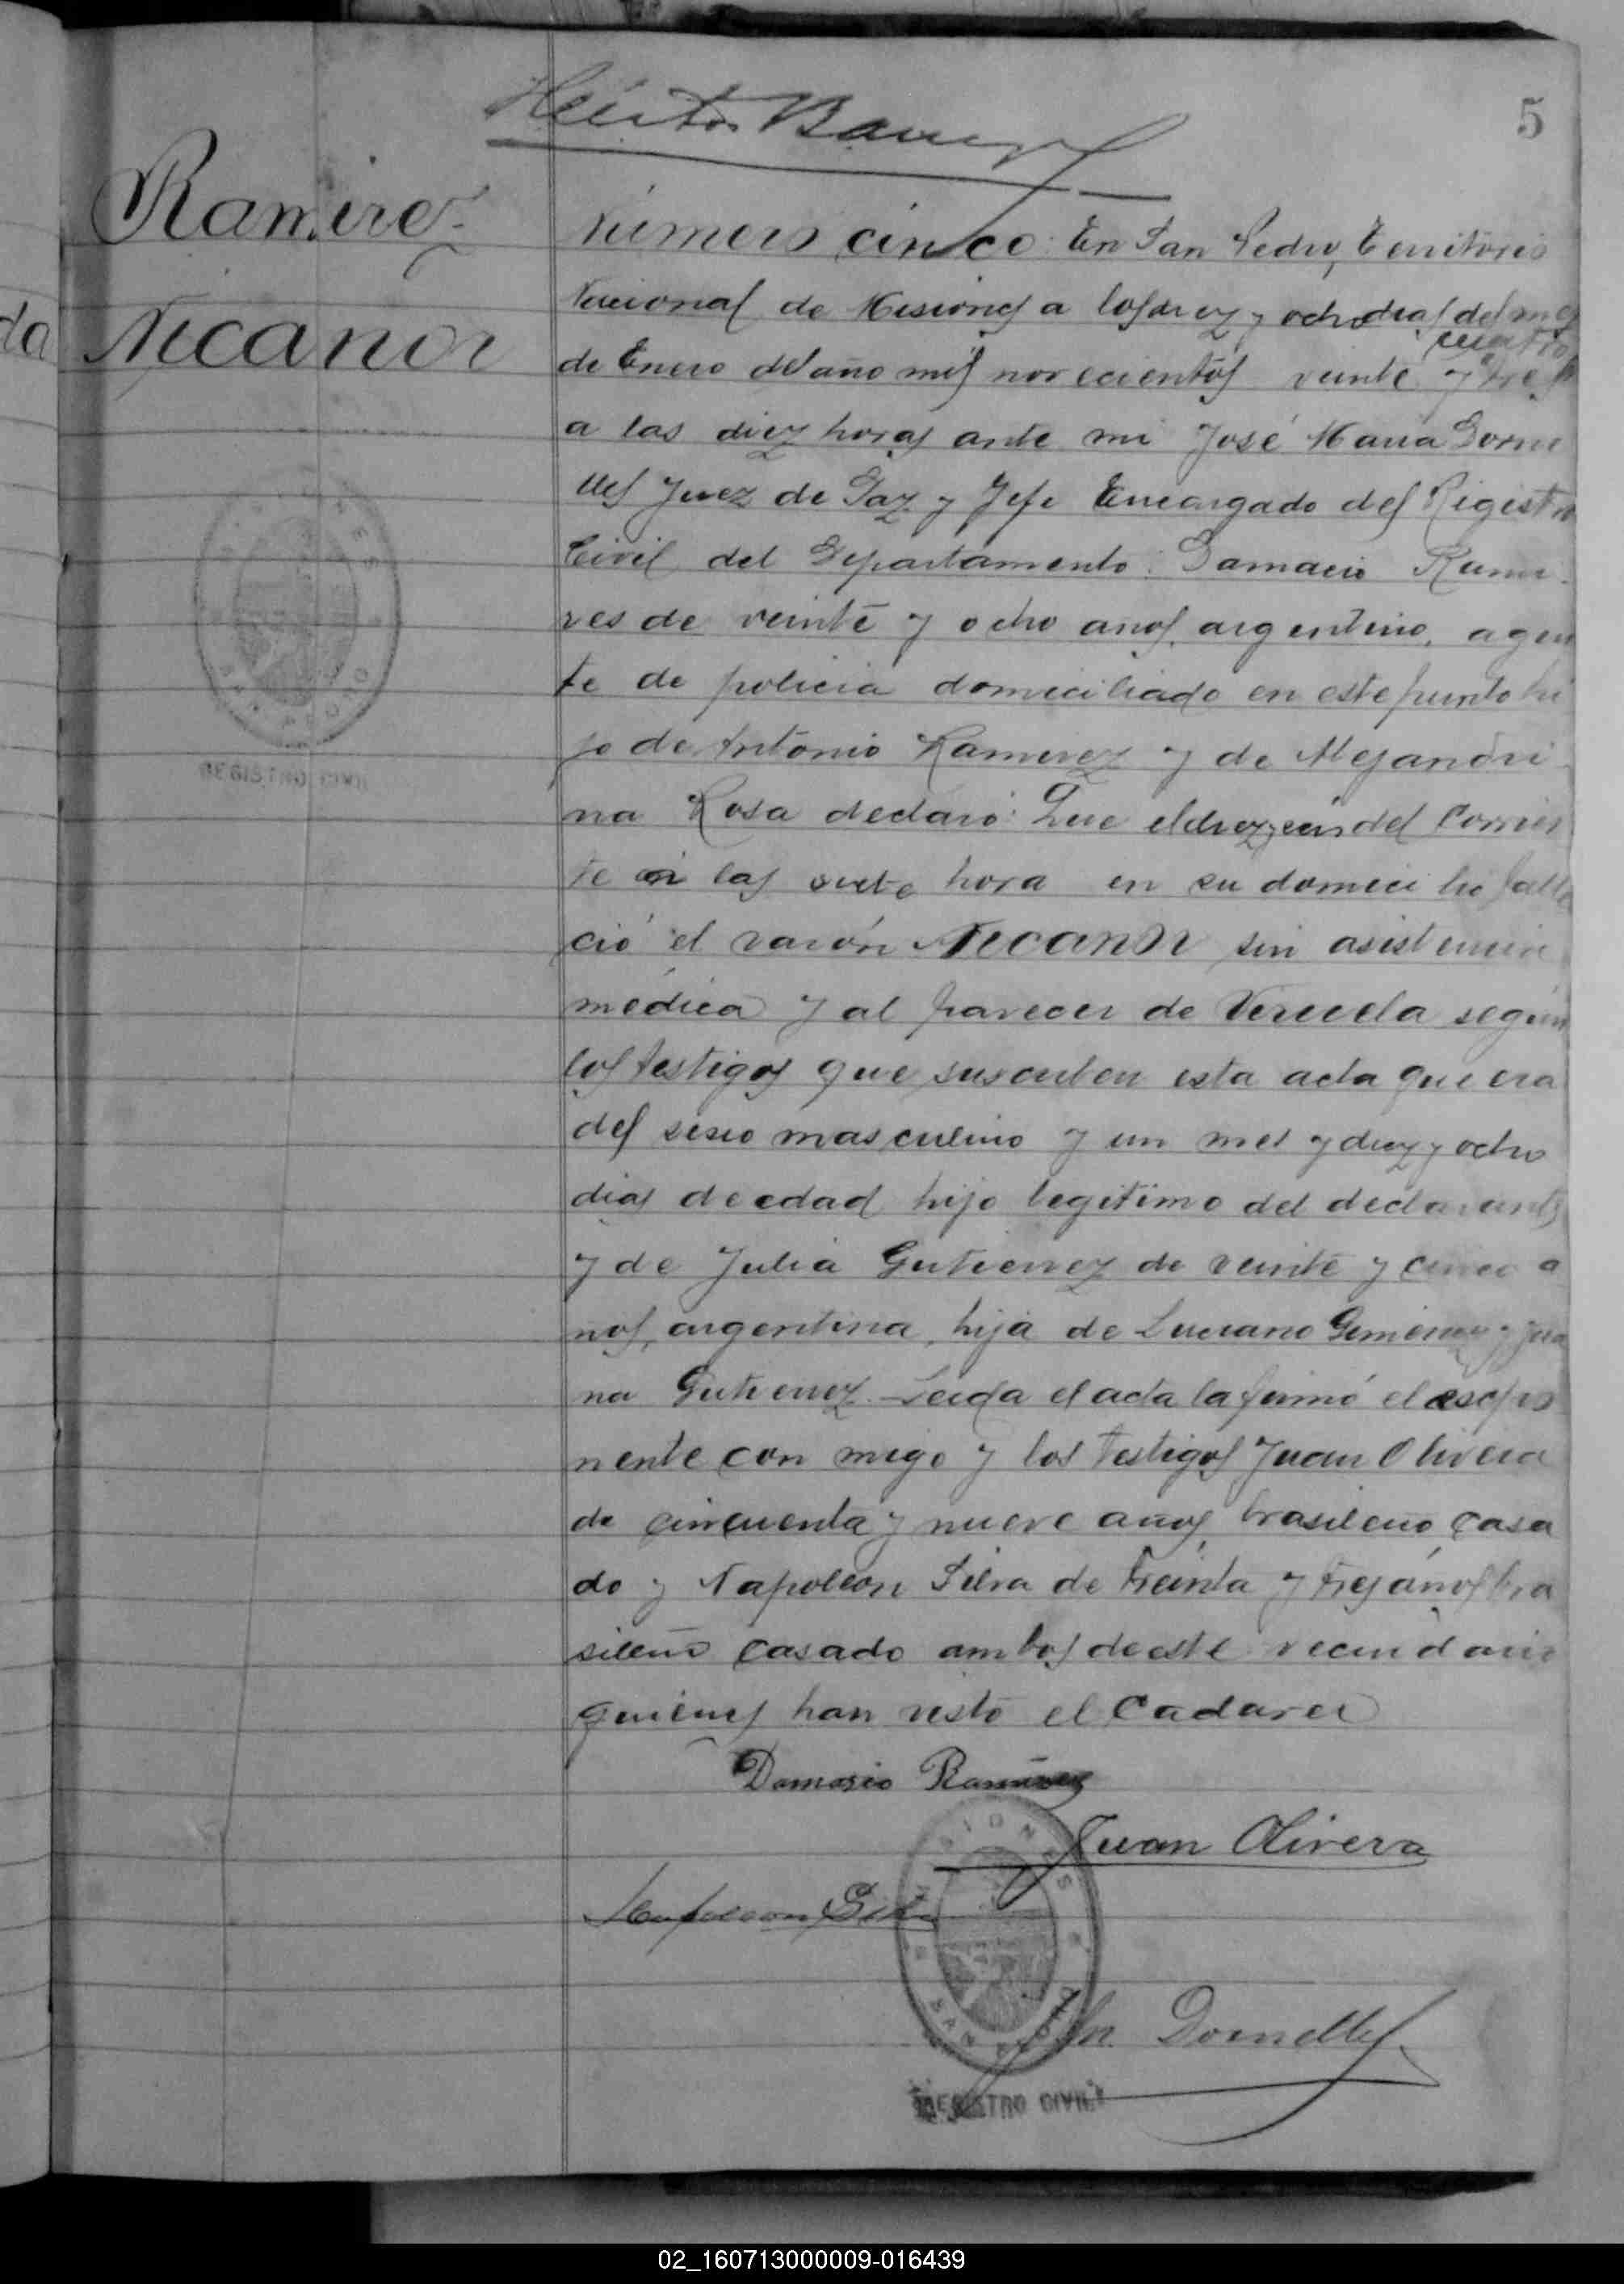 5
Ramirez
Nicanor
da
Número cinco: En San Pedro, Territorio
Nacional de Misiones a los diez y ocho dias del mes
cuatro
de Enero del año mil novecientos veinte y tres
a las diez horas ante mi José Maria Dorne
lles Juez de Paz y Jefe Encargado del Registro
Civil del Departamento: Damacio Rami
res de veinte y ocho anos, argentino, agen
te de policia domiciliado en este punto hi
jo de Antonio Ramirez y de Alejandri
na Rosa declaró: Que el diez y seis del Corrien
te a las siete hora en su domicilio falle
ció el varón Nicanor sin asistencia
médica y al parecer de Viruela según
los testigos que suscriben esta acta que era
del sexo masculino y un mes y diez y ocho
dias de edad hijo legitimo del declarante
y de Julia Gutierrez de veinte y cinco a
ños, argentina, hija de Luciano Gimenez y Jua
na Gutierrez. Leida el acta la firmó el espo
nente con migo y los testigos Juan Olivera
de cincuenta y nueve años, brasileño, casa
do y Napoleon Silva de treinta y tres años bra
sileño casado ambos de este vecindario
quienes han visto el Cadaver
Damasio Ramirez
Juan Olivera
Napoleon Silva
MISIONES
SAN PEDRO
Dornelles
REGISTRO CIVIL
MISIONES
SAN PEDRO
REGISTRO CIVIL
02_160713000009-016439